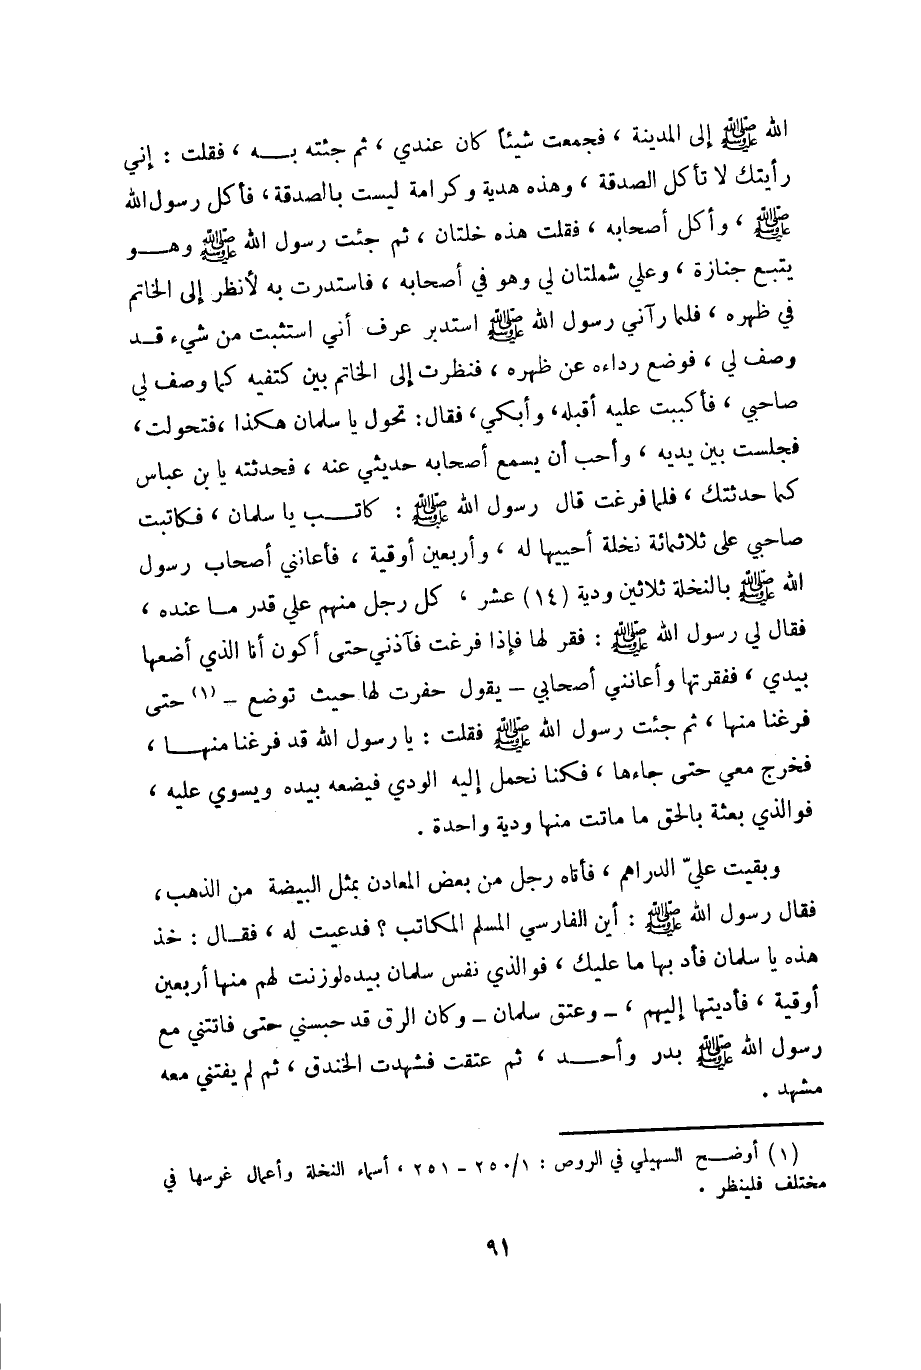 الله ﷺ إلى المدينة ، فجمعت شيئاً كان عندي ، ثم جئته بـــه ، فقلت : إني
رأيتك لا تأكل الصدقة ، وهذه هدية وكرامة ليست بالصدقة ، فأكل رسول الله
ﷺ ، وأكل أصحابه ، فقلت هذه خلتان ، ثم جئت رسول الله ﷺ وهـــو
يتبع جنازة ، وعلي شملتان لي وهو في أصحابه ، فاستدرت به لأنظر إلى الخاتم
في ظهره ، فلما رآني رسول الله ﷺ استدبر عرف أني استثبت من شيء قـــد
وصف لي ، فوضع رداءه عن ظهره ، فنظرت إلى الخاتم بين كتفيه كما وصف لي
صاحبي ، فأكببت عليه أقبله ، وأبكي ، فقال : تحول يا سلمان هكذا ، فتحولت ،
فجلست بين يديه ، وأحب أن يسمع أصحابه حديثي عنه ، فحدثته يا بن عباس
كما حدثتك ، فلما فرغت قال رسول الله ﷺ : كاتـــب يا سلمان ، فكاتبت
صاحبي على ثلاثمائة نخلة أحييها له ، وأربعين أوقية ، فأعانني أصحاب رسول
الله ﷺ بالنخلة ثلاثين ودية (١٤) عشر ، كل رجل منهم علي قدر مـــا عنده ،
فقال لي رسول الله ﷺ : فقر لها فإذا فرغت فآذني حتى أكون أنا الذي أضعها
بيدي ، ففقرتها وأعانني أصحابي – يقول حفرت لها حيث توضع – (١) حتى
فرغنا منها ، ثم جئت رسول الله ﷺ فقلت : يا رسول الله قد فرغنا منهـــا ،
فخرج معي حتى جاءها ، فكنا نحمل إليه الودي فيضعه بيده ويسوي عليه ،
فوالذي بعثة بالحق ما ماتت منها ودية واحدة .
وبقيت عليّ الدراهم ، فأتاه رجل من بعض المعادن بمثل البيضة من الذهب ،
فقال رسول الله ﷺ : أين الفارسي المسلم المكاتب ؟ فدعيت له ، فقـــال : خذ
هذه يا سلمان فأد بها ما عليك ، فوالذي نفس سلمان بيده لوزنت لهم منها أربعين
أوقية ، فأديتها إليهم ، – وعتق سلمان – وكان الرق قد حبسني حتى فاتتني مع
رسول الله ﷺ بدر وأحـــد ، ثم عتقت فشهدت الخندق ، ثم لم يفتني معه
مشهد .
(١) أوضـــح السهيلي في الروص : ١/ ٢٥٠ – ٢٥١ ، أسماء النخلة وأعمال غرسها في
مختلف فلينظر .
٩١